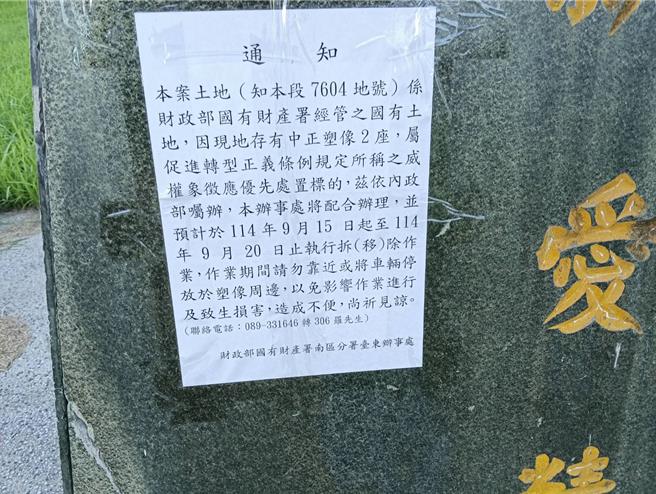 通知
本案土地（知本段7604地號）係
財政部國有財產署經管之國有土
地，因現地存有中正塑像2座，屬
促進轉型正義條例規定所稱之威
權象徵應優先處置標的，茲依內政
部囑辦，本辦事處將配合辦理，並
預計於114年9月15日起至114
年9月20日止執行拆(移)除作
業，作業期間請勿靠近或將車輛停
放於塑像周邊，以免影響作業進行
及致生損害，造成不便，尚祈見諒。
(聯絡電話：089-331646轉306羅先生)
財政部國有財產署南區分署臺東辦事處
愛
精